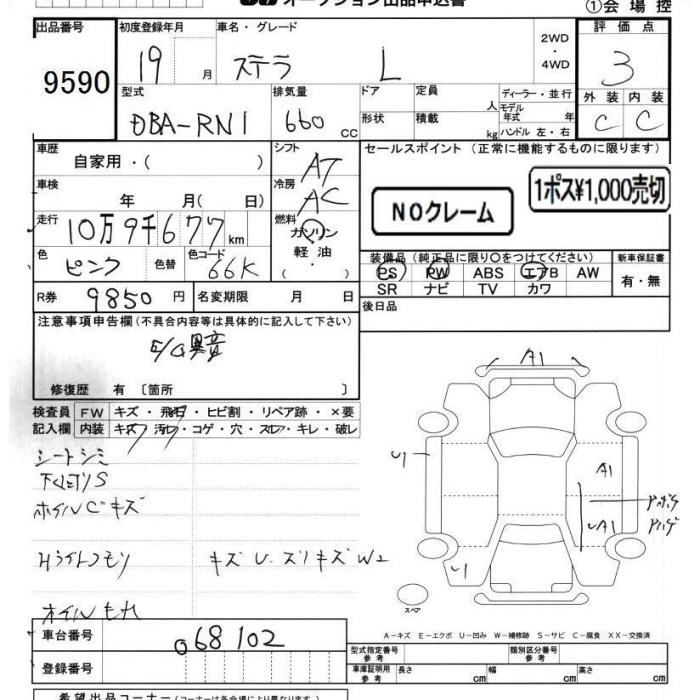 オークション出品申込書
①会場控
出品番号 初度登録年月 車名・グレード 2WD・4WD 評価点
9590 19 月 ステラ L 3
型式 排気量 ドア 定員 人 ディーラー・並行 外装 内装
DBA-RN1 660 CC 形状 積載 kg モデル年式 年 ハンドル 左・右 C C
車歴 自家用・( ) シフト AT セールスポイント (正常に機能するものに限ります)
車検 年 月( 日) 冷房 AC NOクレーム 1ポス¥1,000売切
走行 10万9千677 km 燃料 ガソリン 軽油
色 ピンク 色替 色コード 66K 装備品 (純正品に限り〇をつけてください) 新車保証書
PS PW ABS エアB AW 有・無
R券 9850 円 名変期限 月 日 SR ナビ TV カワ
注意事項申告欄 (不具合内容等は具体的に記入して下さい) 後日品
E/G異音
修復歴 有 〔箇所 〕
検査員 FW キズ・飛石・ヒビ割・リペア跡・×要
記入欄 内装 キズ・汚レ・コゲ・穴・スレ・キレ・破レ
シートシミ
下回りS
ホイルCキズ
Hライトクモリ キズ U.ズリキズ W2
オイルもれ
A1
U1 A1
A1
U1
スペア
車台番号 068102
A-キズ E-エクボ U-凹み W-補修跡 S-サビ C-腐食 XX-交換済
登録番号 型式指定番号 参考 類別区分番号 参考
車庫証明用 参考 長さ cm 幅 cm 高さ cm
希望出品コーナー (コーナーは各会場により異なります)